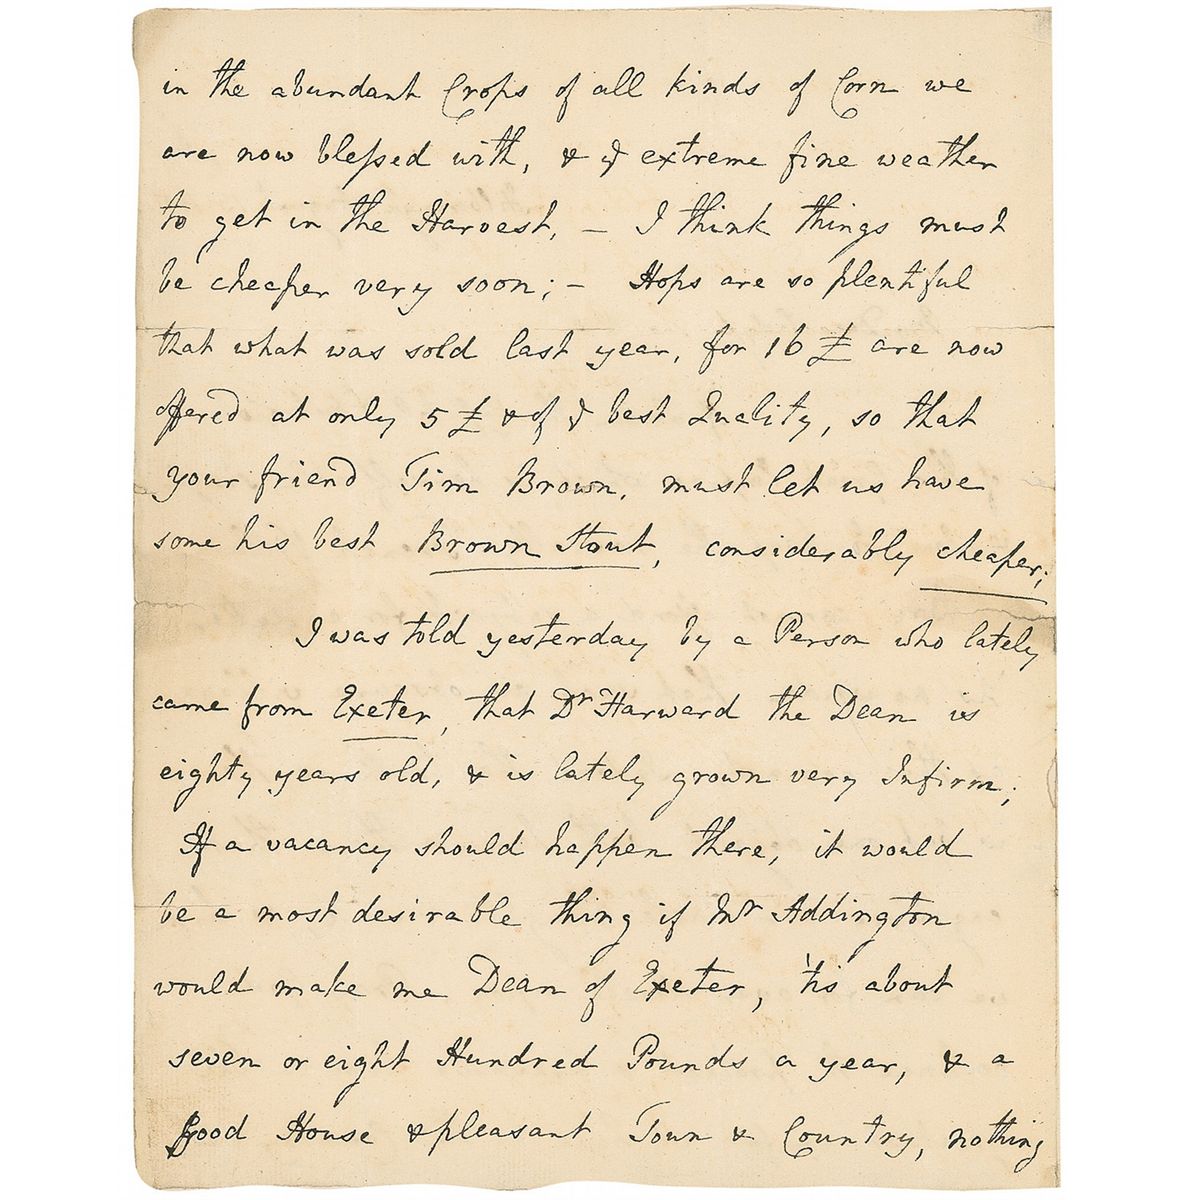 in the abundant Crops of all kinds of Corn we
are now blessed with, & ye extreme fine weather
to get in the Harvest, – I think things must
be cheaper very soon; – Hops are so plentiful
that what was sold last year, for 16 £ are now
offered at only 5 £ & of ye best Quality, so that
your friend Tim Brown, must let us have
some his best Brown Stout, considerably cheaper;
I was told yesterday by a Person who lately
came from Exeter, that Dr Harward the Dean is
eighty years old, & is lately grown very Infirm;
If a vacancy should happen there, it would
be a most desirable thing if Mr Addington
would make me Dean of Exeter, 'tis about
seven or eight Hundred Pounds a year, & a
good House & pleasant Town & Country, nothing